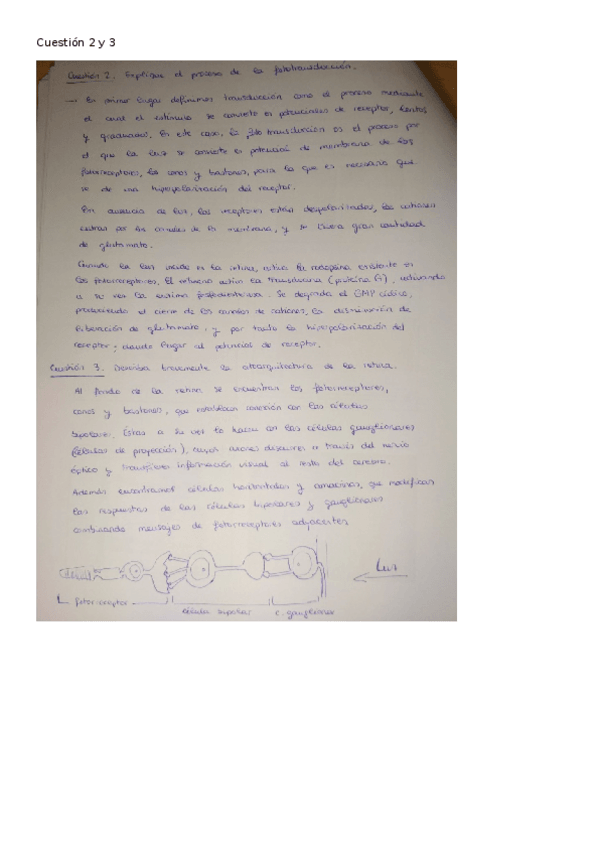 Cuestión 2 y 3
Cuestión 2. Explique el proceso de la fototransducción.
→ En primer lugar definimos transducción como el proceso mediante
el cual el estímulo se convierte en potenciales de receptor, lentos
y graduados. En este caso, la fototransducción es el proceso por
el que la luz se convierte en potencial de membrana de los
fotorreceptores, los conos y bastones, para lo que es necesario que
se dé una hiperpolarización del receptor.
En ausencia de luz, los receptores están despolarizados, los cationes
entran por los canales de la membrana, y se libera gran cantidad
de glutamato.
Cuando la luz incide en la retina, activa la rodopsina existente en
los fotorreceptores. El retineno activa la transducina (proteína G), activando
a su vez la enzima fosfodiesterasa. Se degrada el GMP cíclico,
produciendo el cierre de los canales de cationes, la disminución de
liberación de glutamato, y por tanto la hiperpolarización del
receptor; dando lugar al potencial de receptor.
Cuestión 3. Describa brevemente la citoarquitectura de la retina.
Al fondo de la retina se encuentran los fotorreceptores,
conos y bastones, que establecen conexión con las células
bipolares. Éstas a su vez lo hacen con las células ganglionares
(células de proyección), cuyos axones discurren a través del nervio
óptico y transfieren información visual al resto del cerebro.
Además encontramos células horizontales y amacrinas, que modifican
las respuestas de las células bipolares y ganglionares
combinando mensajes de fotorreceptores adyacentes.
Luz
fotorreceptor
célula bipolar
c. ganglionar